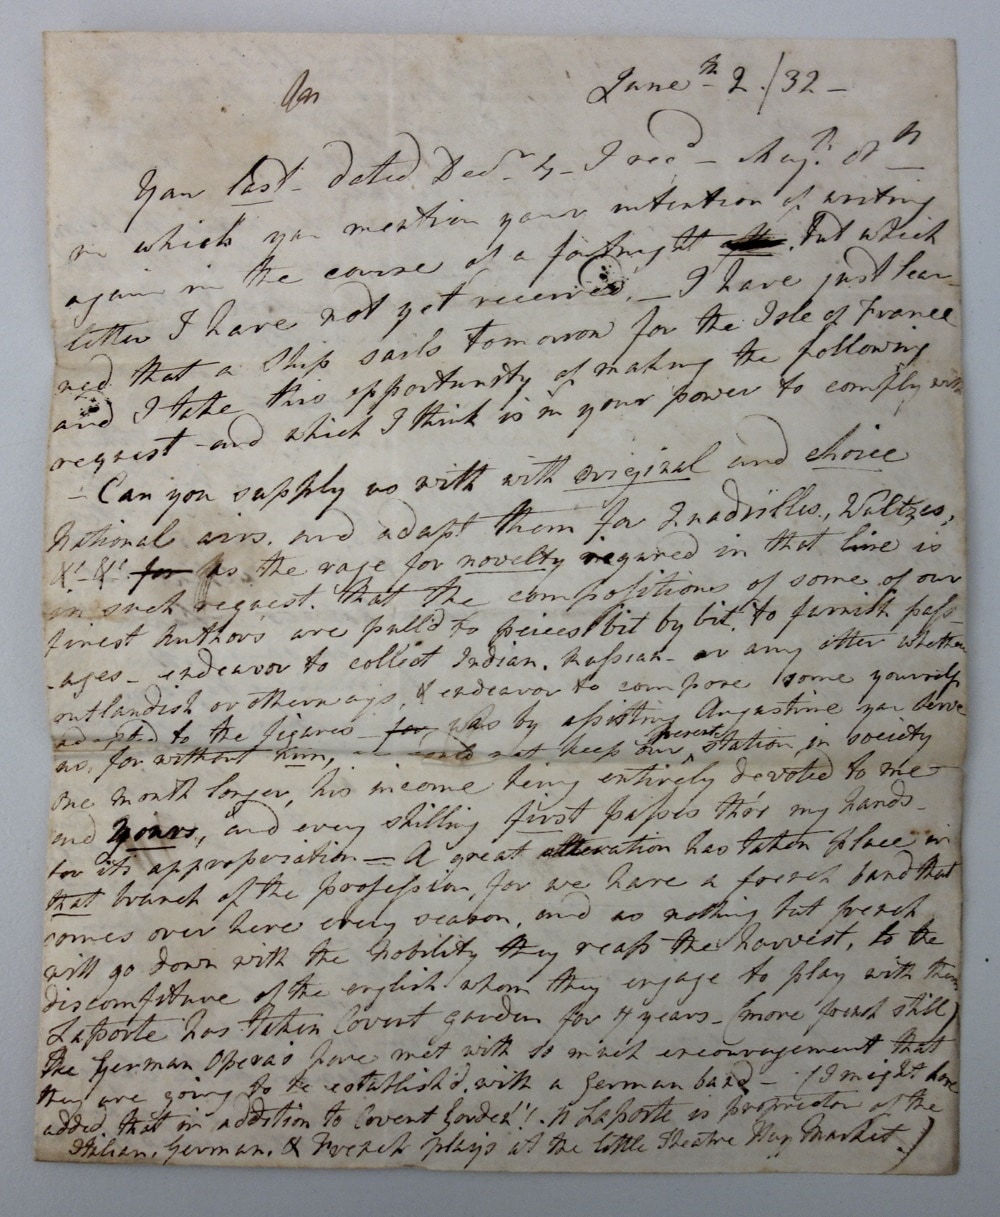 June 2. /32 -
Your last - dated Decr 4 - I recd - May
in which you mention your intention of writing
again in the course of a fortnight but which
letter I have not yet received. - I have just lear-
ned that a Ship sails tomorrow for the Isle of France
and I take this opportunity of making the following
request - and which I think is in your power to comply with
- Can you supply us with with original and choice
National airs. and adapt them for Quadrilles, Waltzes,
&c &c for as the rage for novelty required in that line is
in such request. that the compositions of some of our
finest Authors are pull'd to peices bit by bit. to furnish pass
-ages - endeavor to collect Indian. Russian - or any other whether
outlandish or otherways, & endeavor to compose some yourself
adapted to the figures - for, by assisting Augustine you serve
us, for without him, could not keep our present station in society
one month longer, his income being entirely devoted to me
and yours, and every shilling first passes thro' my hands -
for its appropriation - A great alteration has taken place in
that branch of the profession, for we have a french band that
comes over here every season, and as nothing but french
will go down with the Nobility they reap the harvest, to the
discomfiture of the english whom they engage to play with them
Laporte has taken Covent Garden for 7 years - (more french still)
The German Opera's have met with so much encouragement that
they are going to be establish'd. with a German band - (I might have
added, that in addition to Covent Garden! Laporte is proprietor of the
Italian, German, & French plays at the little theatre Hay Market)